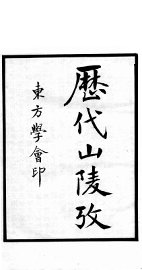 歷代山陵攷
東方學會印